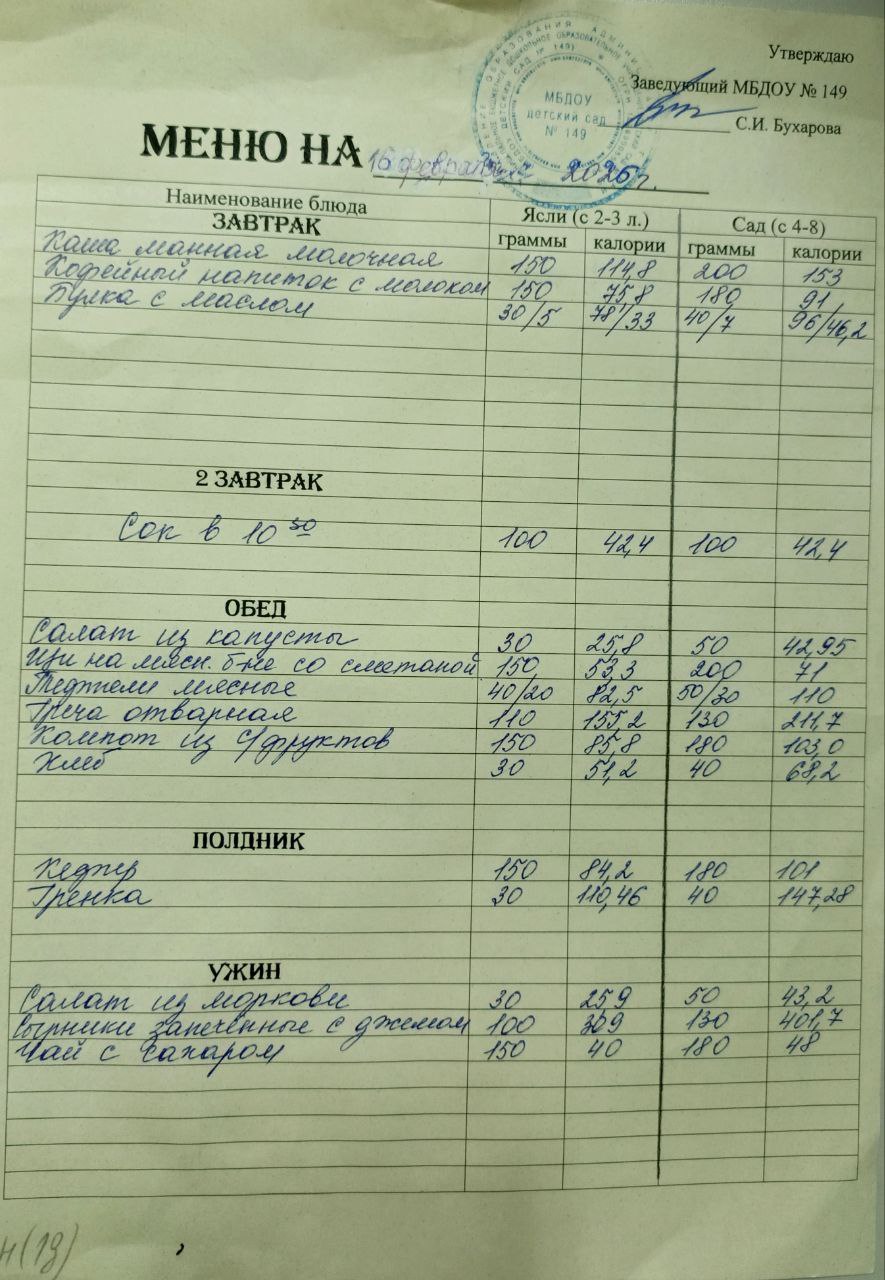 Утверждаю
Заведующий МБДОУ № 149
С.И. Бухарова
МБДОУ
детский сад
№ 149
МЕНЮ НА 16 февраля 2026 г.
Наименование блюда Ясли (с 2-3 л.) Сад (с 4-8)
ЗАВТРАК граммы калории граммы калории
Каша манная молочная 150 114,8 200 153
Кофейный напиток с молоком 150 75,8 180 91
Булка с маслом 30/5 78/33 40/7 96/46,2
2 ЗАВТРАК
Сок в 10 30 100 42,4 100 42,4
ОБЕД
Салат из капусты 30 25,8 50 42,95
Щи на мясн. б-не со сметаной 150 53,3 200 71
Тефтели мясные 40/20 82,5 50/30 110
Греча отварная 110 155,2 130 211,7
Компот из с/фруктов 150 85,8 180 103,0
Хлеб 30 51,2 40 68,2
ПОЛДНИК
Кефир 150 84,2 180 101
Гренка 30 110,46 40 147,28
УЖИН
Салат из моркови 30 25,9 50 43,2
Сырники запеченные с джемом 100 309 130 401,7
Чай с сахаром 150 40 180 48